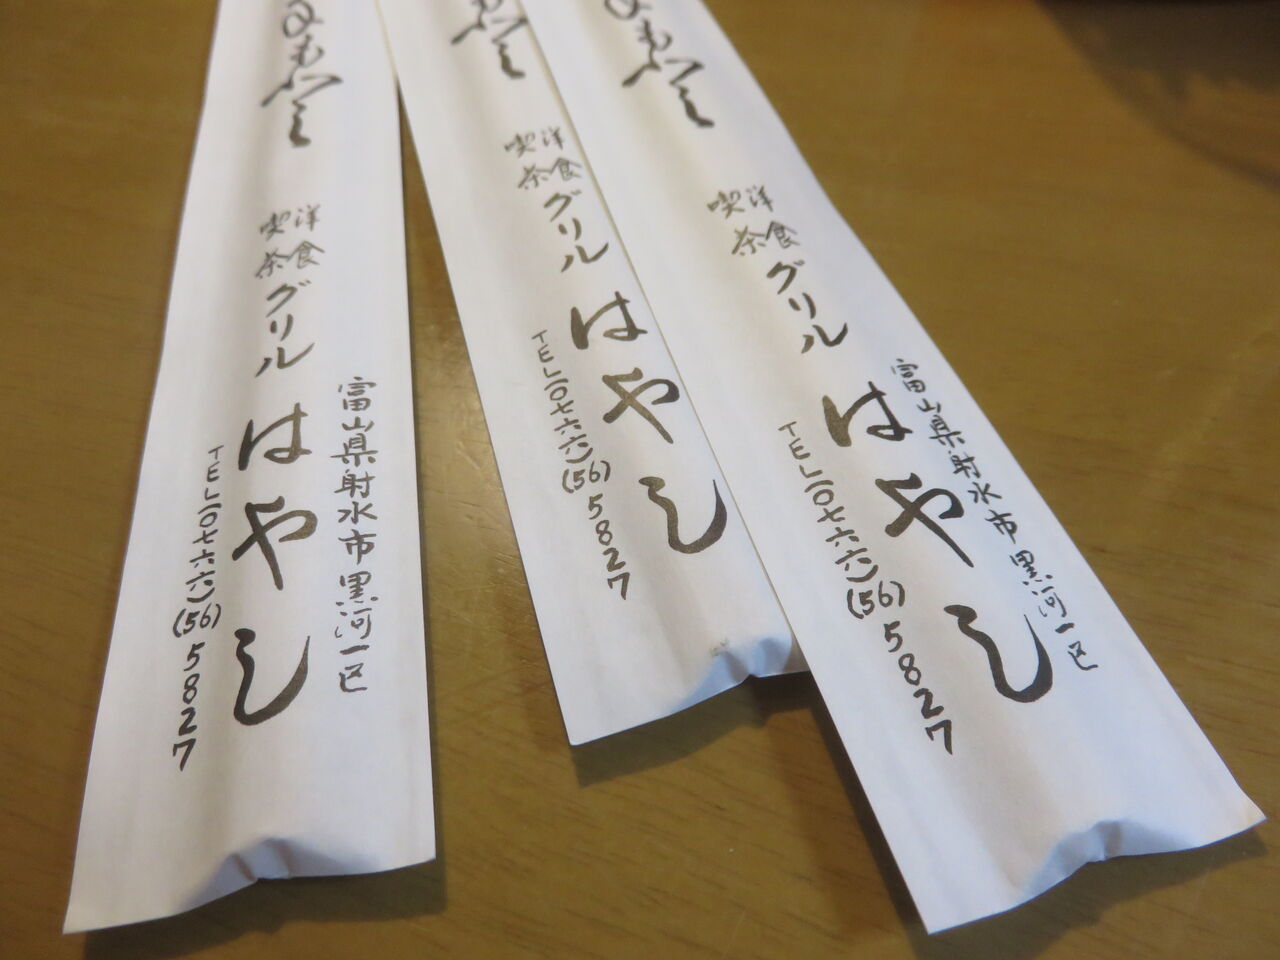 洋食
喫茶
グリル
はやし
富山県射水市黒河一区
TEL〇七六六(56)5827
洋食
喫茶
グリル
はやし
TEL〇七六六(56)5827
洋食
喫茶
グリル
はやし
富山県射水市黒河一区
TEL〇七六六(56)5827